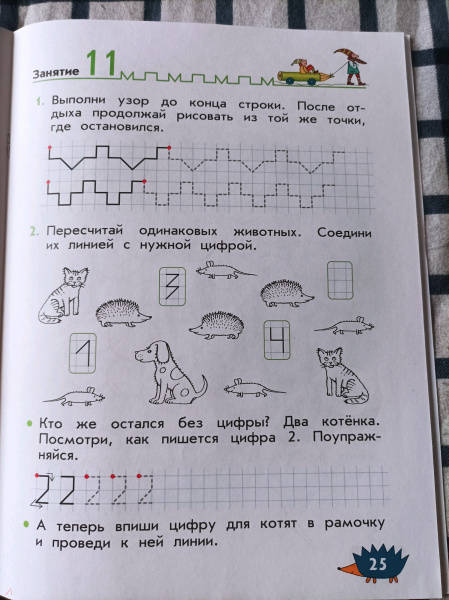 Занятие 11
1. Выполни узор до конца строки. После от-
дыха продолжай рисовать из той же точки,
где остановился.
2. Пересчитай одинаковых животных. Соедини
их линией с нужной цифрой.
3
1
4
• Кто же остался без цифры? Два котёнка.
Посмотри, как пишется цифра 2. Поупраж-
няйся.
2 2 2 2 2
• А теперь впиши цифру для котят в рамочку
и проведи к ней линии.
25